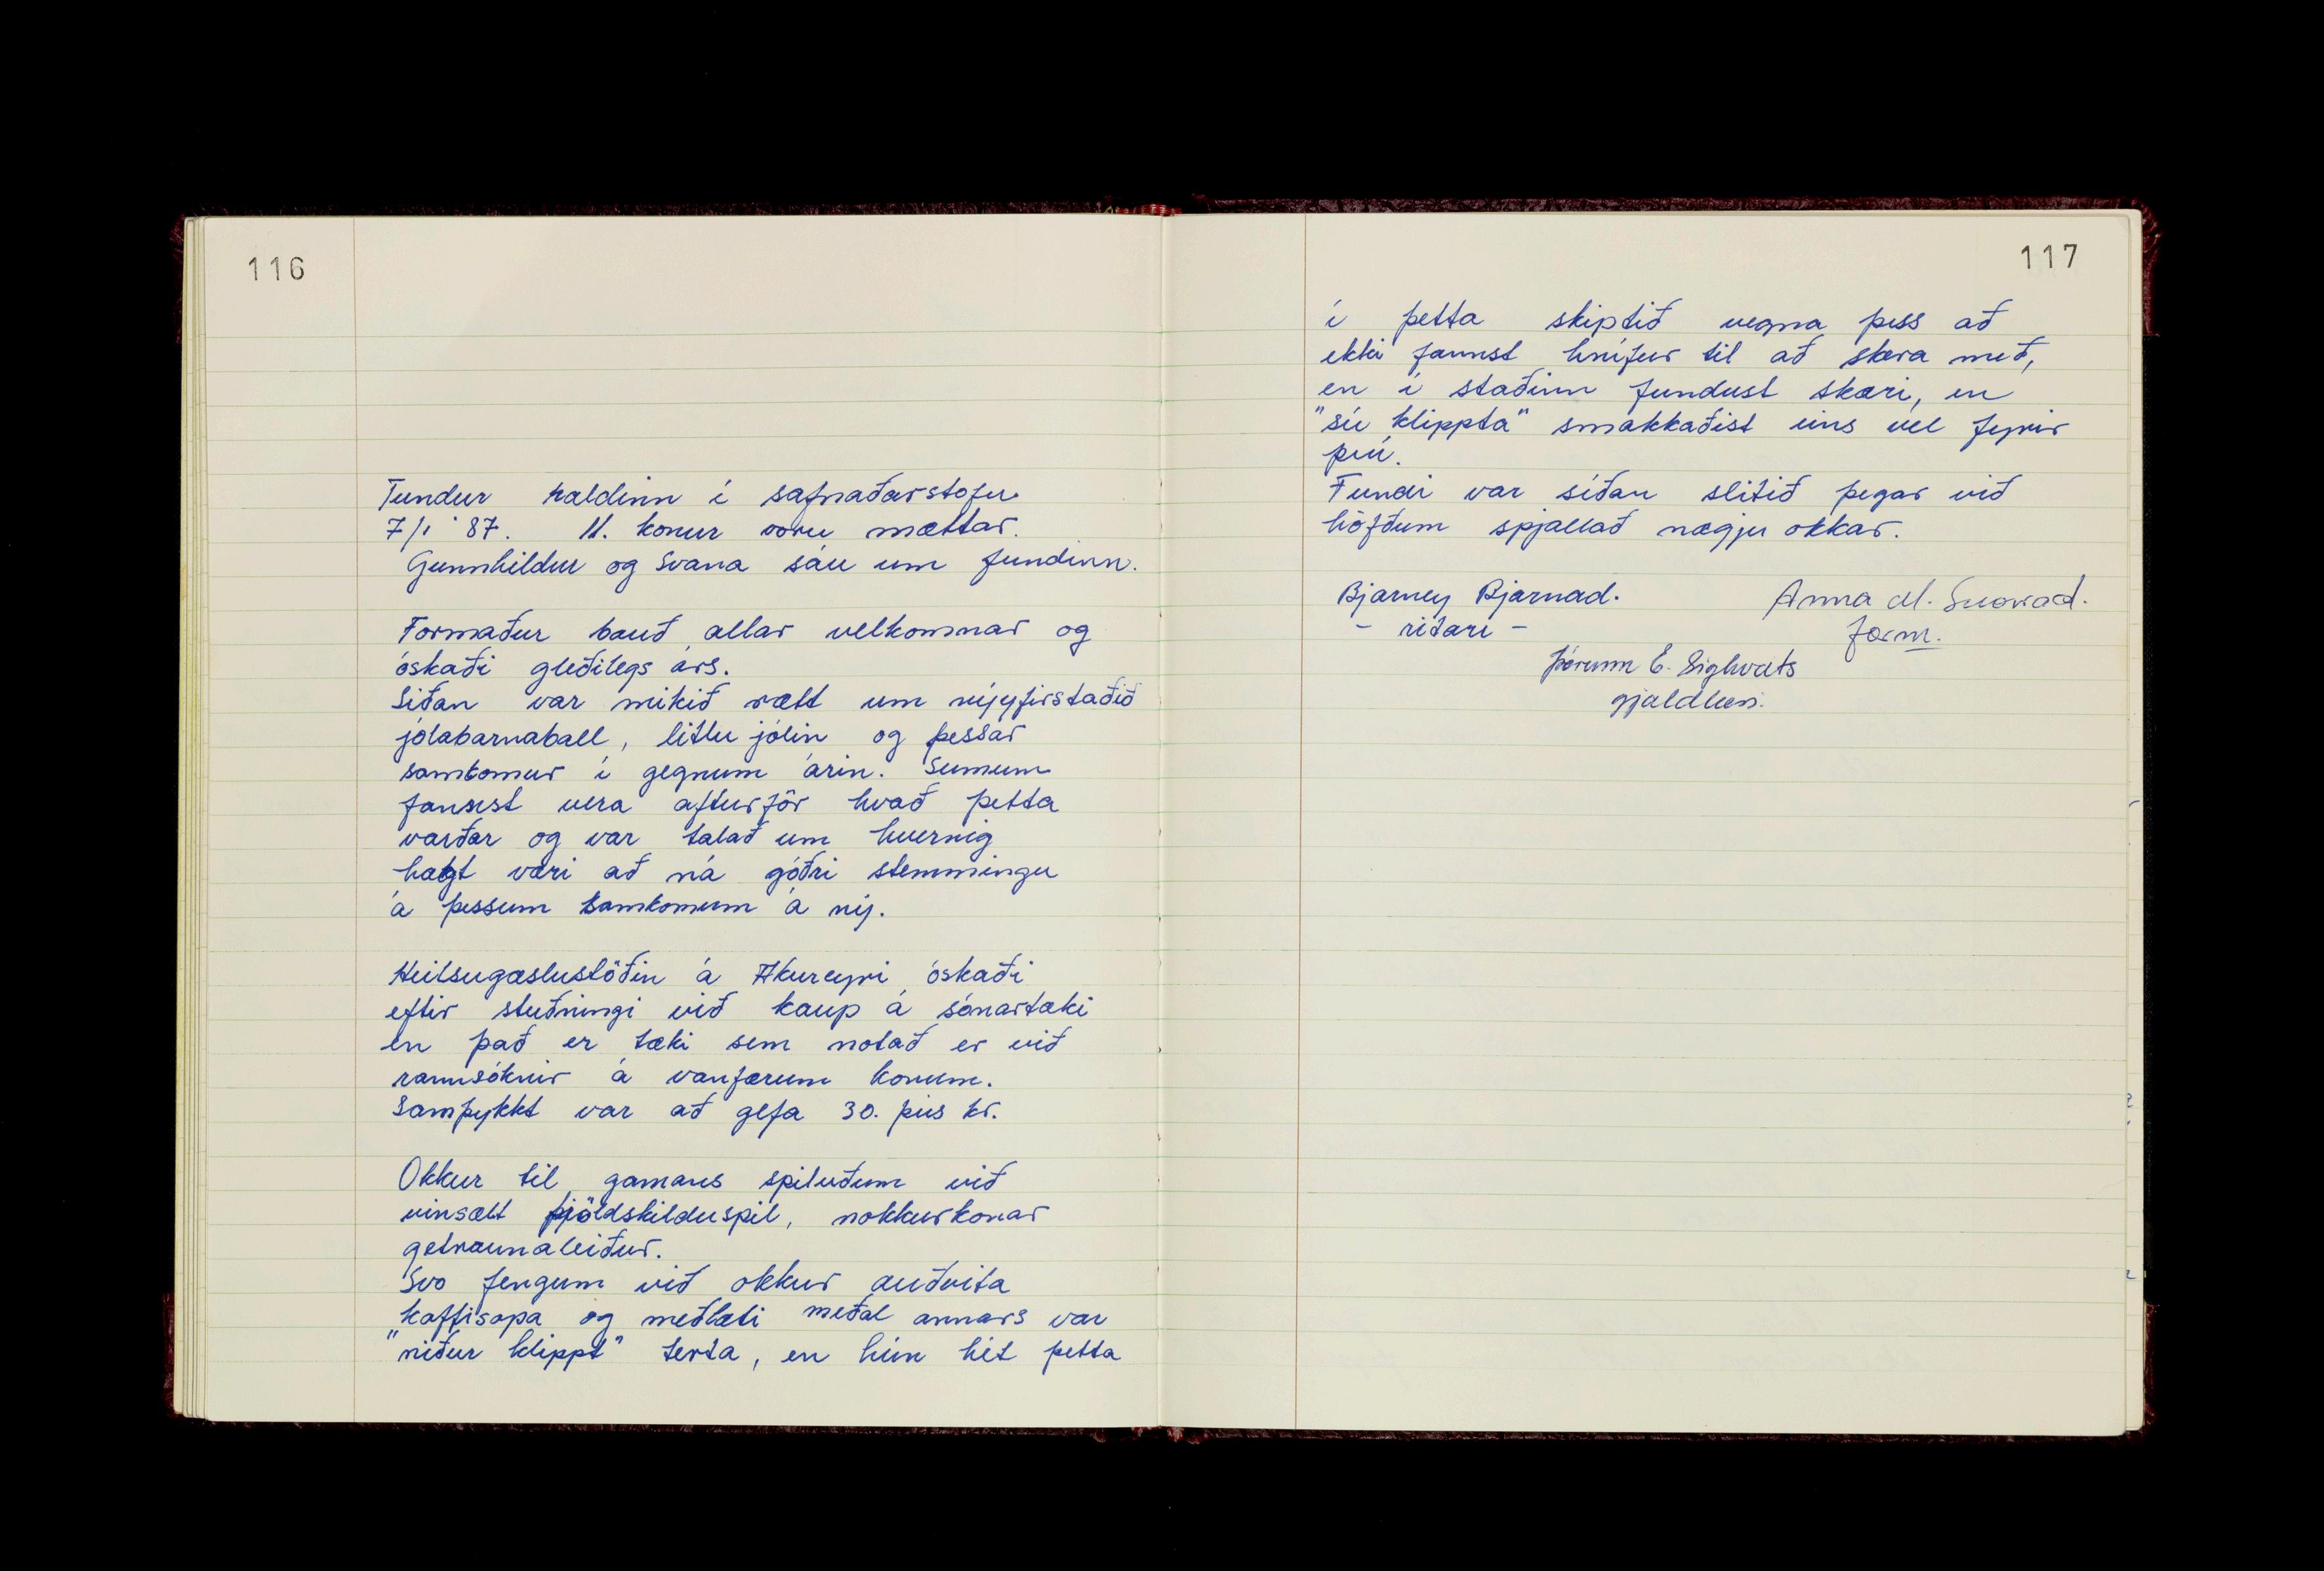 116
Fundur haldinn í safnaðarstofu
7/1 '87. 11. konur voru mættar.
Gunnhildur og Svana sáu um fundinn.
Formaður bauð allar velkomnar og
óskaði gleðilegs árs.
Síðan var mikið rætt um nýyfirstaðið
jólabarnaball, litlu jólin og þessar
samkomur í gegnum árin. Sumum
fannst vera afturför hvað þetta
varðar og var talað um hvernig
hægt væri að ná góðri stemmingu
á þessum samkomum á ný.
Heilsugæslustöðin á Akureyri óskaði
eftir stuðningi við kaup á sónartæki
en það er tæki sem notað er við
rannsóknir á vanfærum konum.
Samþykkt var að gefa 30. þús kr.
Okkur til gamans spiluðum við
vinsælt fjöldskilduspil, nokkurkonar
getraunaleiður.
Svo fengum við okkur auðvita
kaffisopa og meðlæti meðal annars var
"niður klippt" terta, en hún hét þetta
117
í þetta skiptið vegna þess að
ekki fannst hnífur til að skera með,
en í staðinn fundust skæri, en
"sú klippta" smakkaðist eins vel fyrir
því.
Fundi var síðan slitið þegar við
höfðum spjallað nægju okkar.
Bjarney Bjarnad. Anna M. Snorrad.
- ritari - form.
Þórunn E. Sighvats
gjaldken.